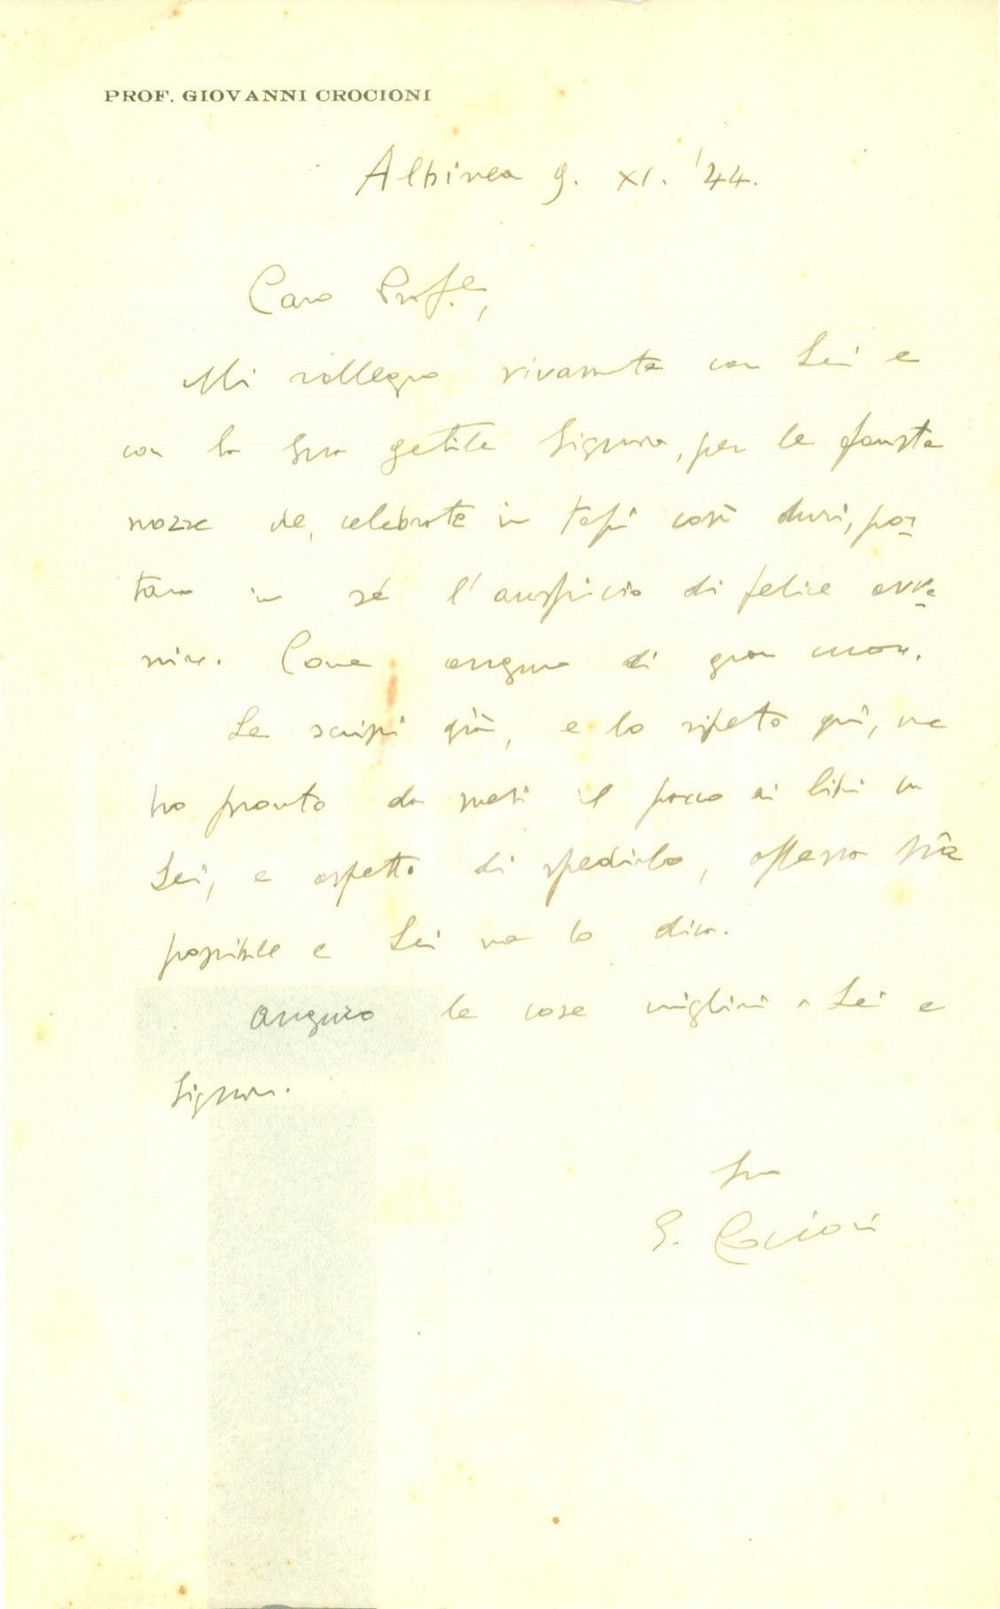 PROF. GIOVANNI CROCIONI
Albinea 9. XI. '44.
Caro Prof.e,
Mi rallegro vivamente con Lei e
con la Sua getile Signora, per le fauste
nozze che, celebrate in tepi così duri, por-
tano in sé l'auspicio di felice avve-
nire. Come auguro di gran cuore.
Le scrissi già, e lo ripeto qui, che
ho pronto da mesi il pacco di libri
Lei, e aspetto di spedirlo, appena sia
possibile e Lei me lo dica.
Auguro le cose migliori a Lei e
Signora.
Suo
G. Crocioni